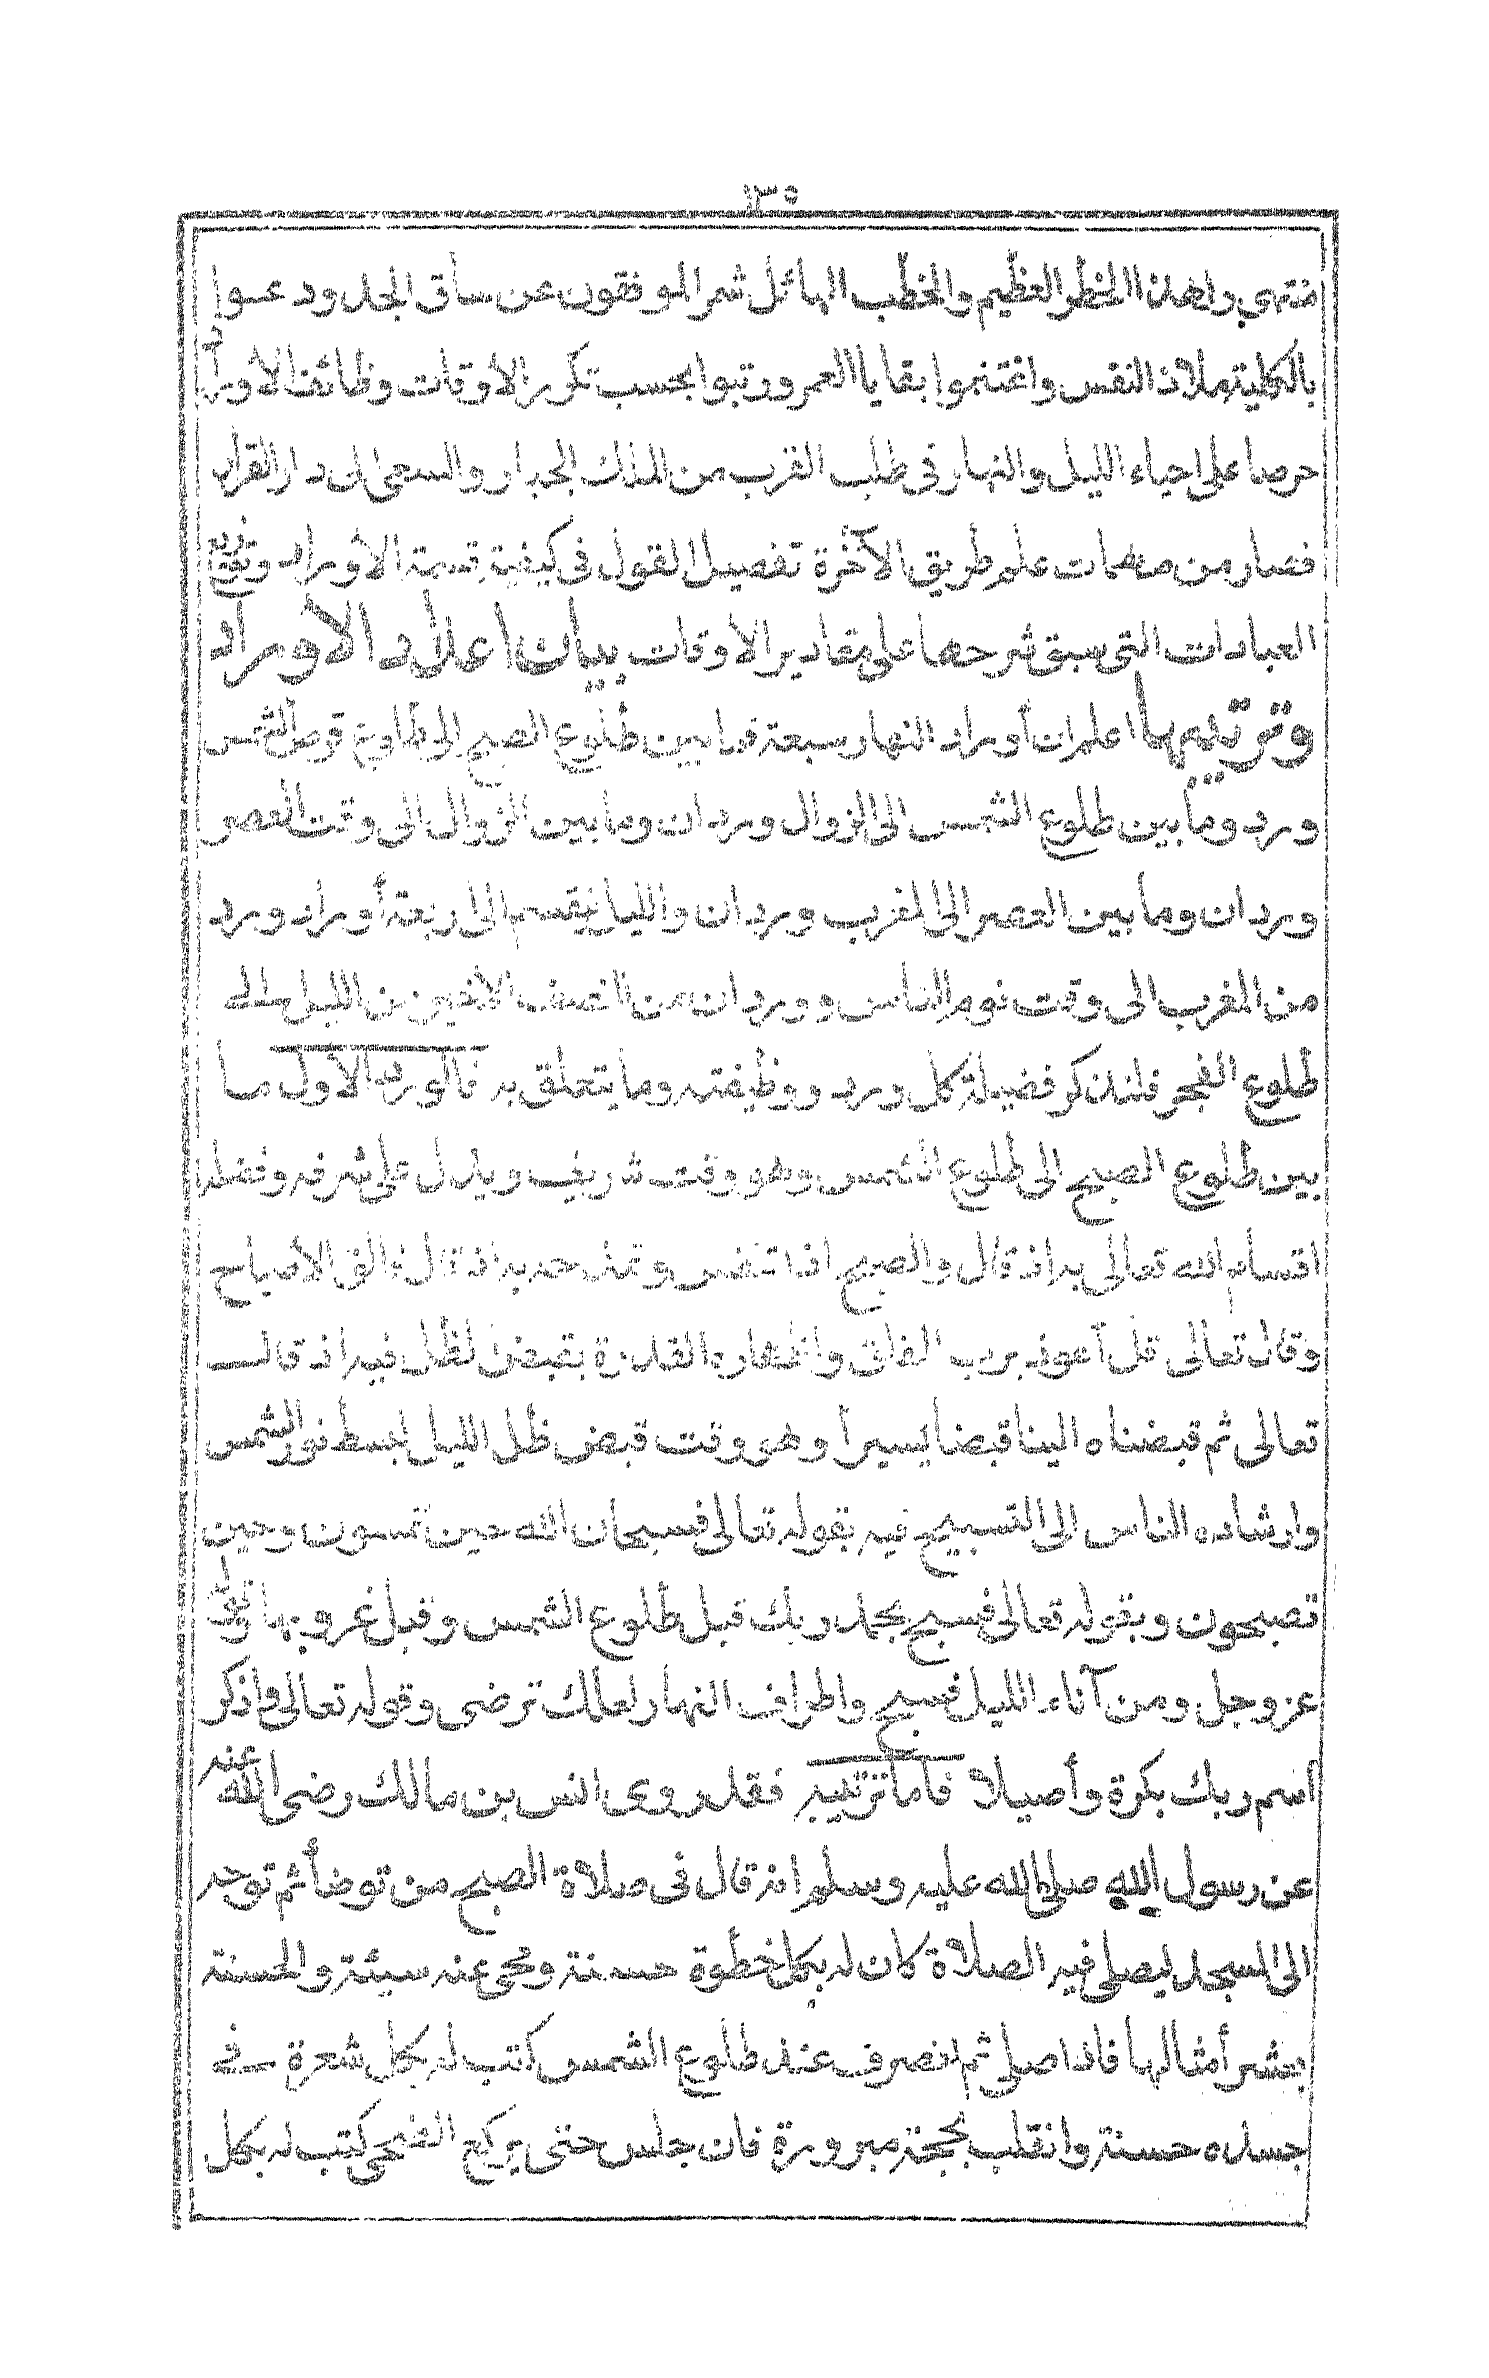 ١٣٥
منتهى ولهذا الخطر العظيم والخطب الهائل شمر الموفقون عن ساق الجد ودعوا
بالكلية ملاذ النفس واغتنموا بقايا العمر ورتبوا بحسب تكرر الأوقات وظائف الأوراد
حرصا على احياء الليل والنهار في طلب القرب من الملك الجبار والسعى الى دار القرار
فصار من مهمات علم طريق الآخرة تفصيل القول فى كيفية قسمة الاوراد وتوزيع
العبادات التى سبق شرحها على مقادير الأوقات بيان اعداد الأوراد
وترتيبها اعلم ان أوراد النهار سبعة فما بين طلوع الصبح إلى طلوع قرص الشمس
ورد وما بين طلوع الشمس الى الزوال وردان وما بين الزوال الى وقت العصر
وردان وما بين العصر الى المغرب وردان والليل ينقسم الى اربعة أوراد ورد
من المغرب الى وقت نوم الناس ووردان من النصف الأخير من الليل الى
طلوع الفجر فلنذكر فضيلة كل ورد ووظيفته وما يتعلق به فالورد الأول ما
بين طلوع الصبح الى طلوع الشمس وهو وقت شريف ويدل على شرفه وفضله
اقسام الله تعالى به اذ قال والصبح اذا تنفس وتمدحه به اذ قال فالق الاصباح
وقال تعالى قل أعوذ برب الفلق واظهاره القدرة بقبض الظل فيه اذ قال
تعالى ثم قبضناه الينا قبضا يسيرا وهو وقت قبض ظل الليل ببسط نور الشمس
وارشاده الناس الى التسبيح فيه بقوله تعالى فسبحان الله حين تمسون وحين
تصبحون وبقوله تعالى فسبح بحمد ربك قبل طلوع الشمس وقبل غروبها وقوله
عز وجل ومن آناء الليل فسبح واطراف النهار لعلك ترضى وقوله تعالى واذكر
اسم ربك بكرة وأصيلا فاما ترتيبه فقد روى انس بن مالك رضى الله عنه
عن رسول الله صلى الله عليه وسلم انه قال فى صلاة الصبح من توضأ ثم توجه
الى المسجد ليصلى فيه الصلاة كان له بكل خطوة حسنة ومحى عنه سيئة والحسنة
بعشر أمثالها فاذا صلى ثم انصرف عند طلوع الشمس كتب له بكل شعرة فى
جسده حسنة وانقلب بحجة مبرورة فان جلس حتى يركع الضحى كتب له بكل